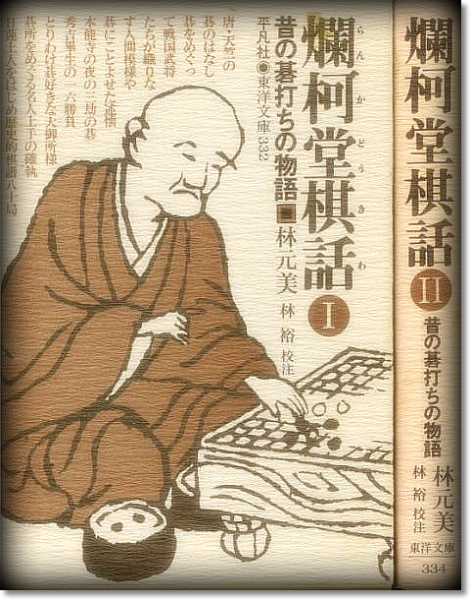 爛柯堂棋話 I
らんかどうきわ
昔の碁打ちの物語■林元美
林 裕 校注
平凡社●東洋文庫332
唐・天竺の
碁のはなし
碁をめぐっ
て戦国武将
たちが織りな
す人間模様や
碁にことよせた述懐
本能寺の夜の三劫の碁
秀吉畢生の一六勝負
とりわけ碁好きな大御所様
碁所をめぐる名人上手の確執
日蓮上人をはじめ歴史的棋譜八十局
爛柯堂棋話 II
昔の碁打ちの物語
林元美
林 裕 校注
東洋文庫
334